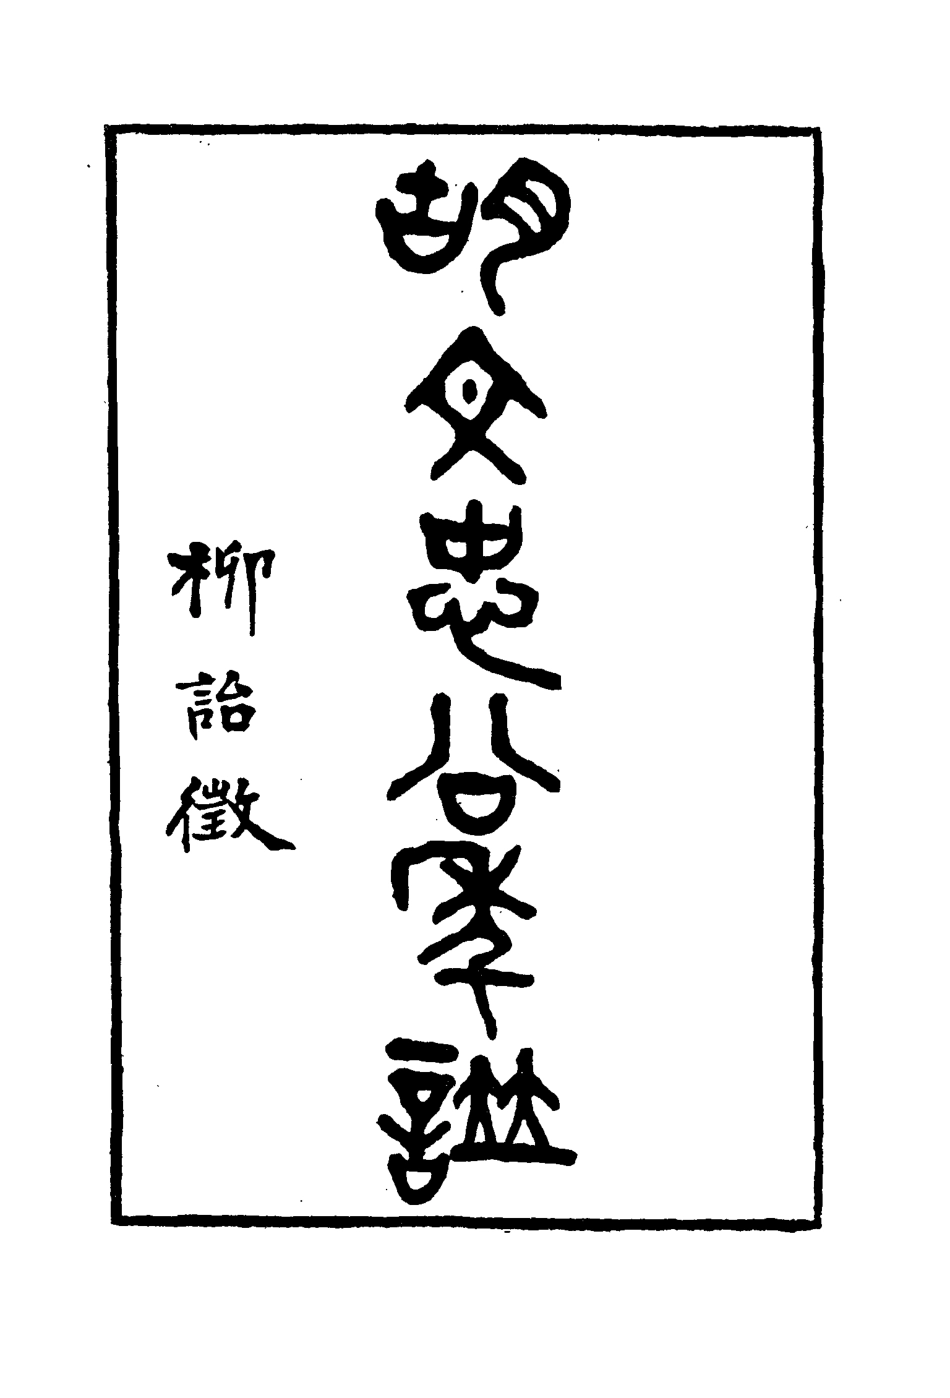 胡文忠公年譜
柳詒徵